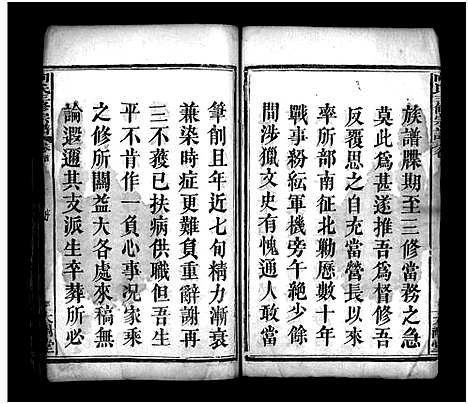 族譜牒期至三修當務之急
莫此爲甚道推吾爲督修吾
反覆思之自充當營長以來
率所部南征北勦歷數十年
間涉獵文史有愧通人
事紛紜軍機旁午絕少餘
筆創且年近七旬精力漸衰
兼染時症更難負重辭謝再
三不獲已扶病供職但吾生
平不肯一負心事况家乘
之修所關益大各處來稿無
論遐邇其支派生卒葬所必
氏三修宗譜